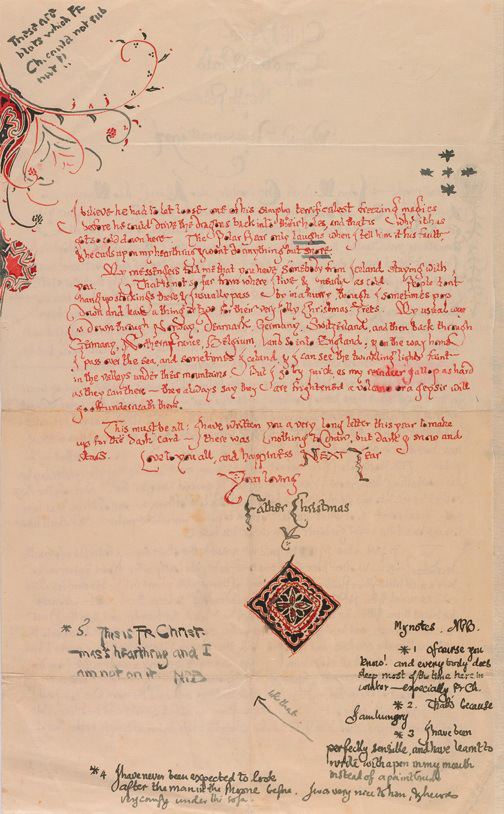 These are
blots which Fr
Ch. could not rub
out!!
I believe he had to let loose one of his simply terrificalest freezing magics
before he could drive the dragons back into their holes, and that is why it has
got so cold down here. The Polar Bear only laughs when I tell him it is his fault,
& he curls up on my hearthrug & won't do anything but snore.
My messengers told me that you have somebody from Iceland staying with
you. That is not so far from where I live & nearly as cold. People don't
hang up stockings there & I usually pass by in a hurry though I sometimes pop
down and leave a thing or two for their very jolly Christmas Trees. My usual way
is down through Norway, Denmark, Germany, Switzerland, and then back through
Germany, Northern France, Belgium, and so into England; & on the way home
I pass over the sea, and sometimes Iceland & I can see the twinkling lights faint
in the valleys under their mountains. But I go by quick as my reindeer gallop as hard
as they can there — they always say they are frightened a volcano or a geysir will
go off underneath them.
This must be all: I have written you a very long letter this year to make
up for the Dark card — there was nothing to draw, but dark & snow and
stars.
Love to you all, and happiness NEXT Year
Your loving
Father Christmas
* 5. This is Fr Christ-
mas's hearthrug and I
am not on it NPB
like that.
My notes. NPB.
* 1 Of course you
know! and everybody does
sleep most of the time here in
winter — especially Fr Ch.
* 2. That's because
I am hungry
* 3 I have been
perfectly sensible, and have learnt to
write with a pen in my mouth
instead of a paintbrush
* 4 I have never been expected to look
after the man in the Moone before. I was very nice to him, & he was
very comfy under the sofa.